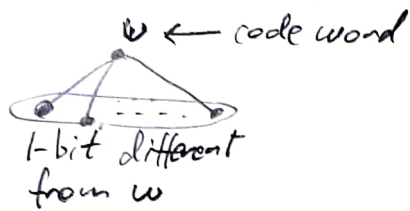 w ← code word
1-bit different
from w